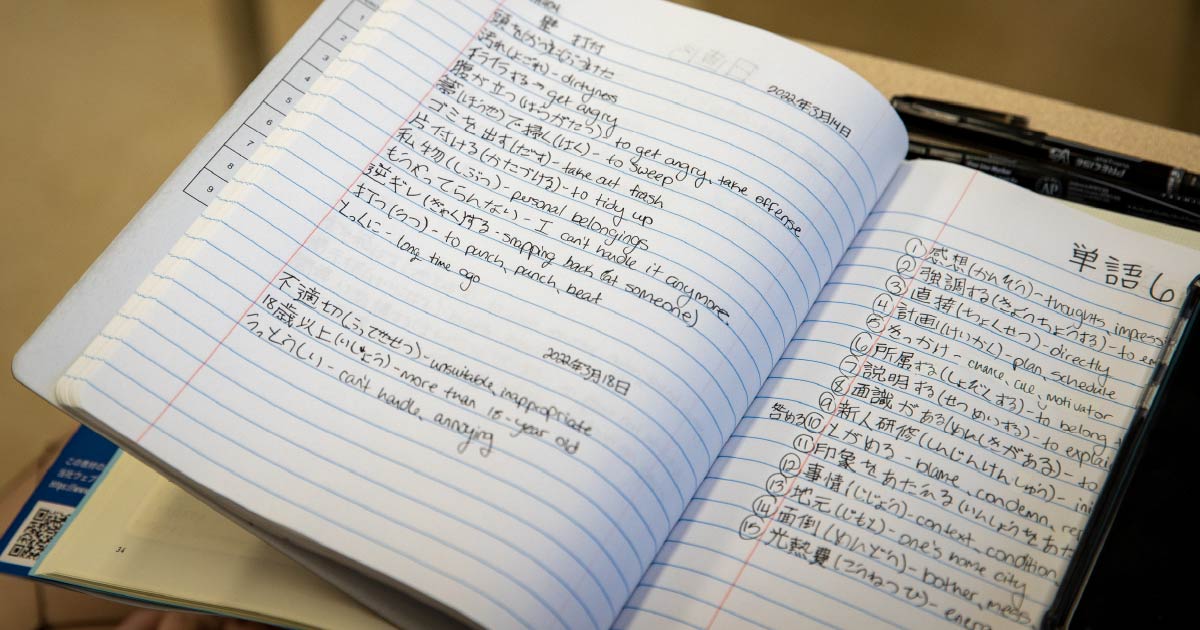 2022年3月14日
壁 打付
汚れ(よごれ) - dirtyness
イライラする → get angry
腹が立つ - to get angry, take offense
で掃く(はく) - to sweep
ゴミを出す(だす) - take out trash
片づける(かたづける) - to tidy up
私物(しぶつ) - personal belongings
もうやってらんない - I can't handle it anymore.
逆ギレ(ぎゃく)する - snapping back (at someone)
打つ(うつ) - to punch, punch, beat
とっくに - long time ago
2022年3月18日
不適切 - unsuitable, inappropriate
18歳以上(いじょう) - more than 18-year old
うっとうしい - can't handle, annying
単語6
① 感想(かんそう) - thoughts, impress
② 強調する(きょうちょうする) - to em
③ 直接(ちょくせつ) - directly
④ 計画(けいかく) - plan schedule
⑤ きっかけ - chance, cue, motivator
⑥ 所属する(しょぞくする) - to belong t
⑦ 説明する(せつめいする) - to explai
⑧ 面識がある(めんしきがある) - to
⑨ 新人研修(しんじんけんしゅう) - ini
咎める ⑩ とがめる - blame, condemn, rep
⑪ 印象をあたえる(いんしょうをあた
⑫ 事情(じじょう) - context, condition
⑬ 地元(じもと) - one's home city
⑭ 面倒(めんどう) - bother, mess,
⑮ 光熱費(こうねつひ) - ener
1
2
3
4
5
6
7
8
9
34
PRECISE V5
この教材の
当社ウェブ
https://ww